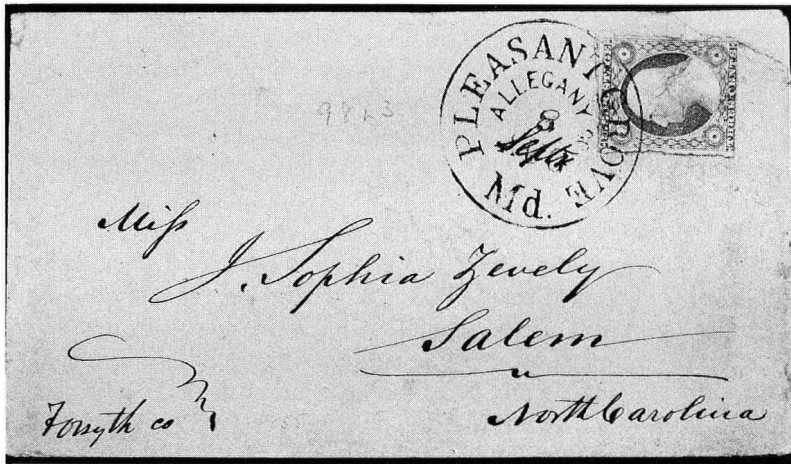 PLEASANT GROVE Md.
ALLEGANY Co
8
Sept
9823
Miss
J. Sophia Zevely
Salem
North Carolina
Forsyth co